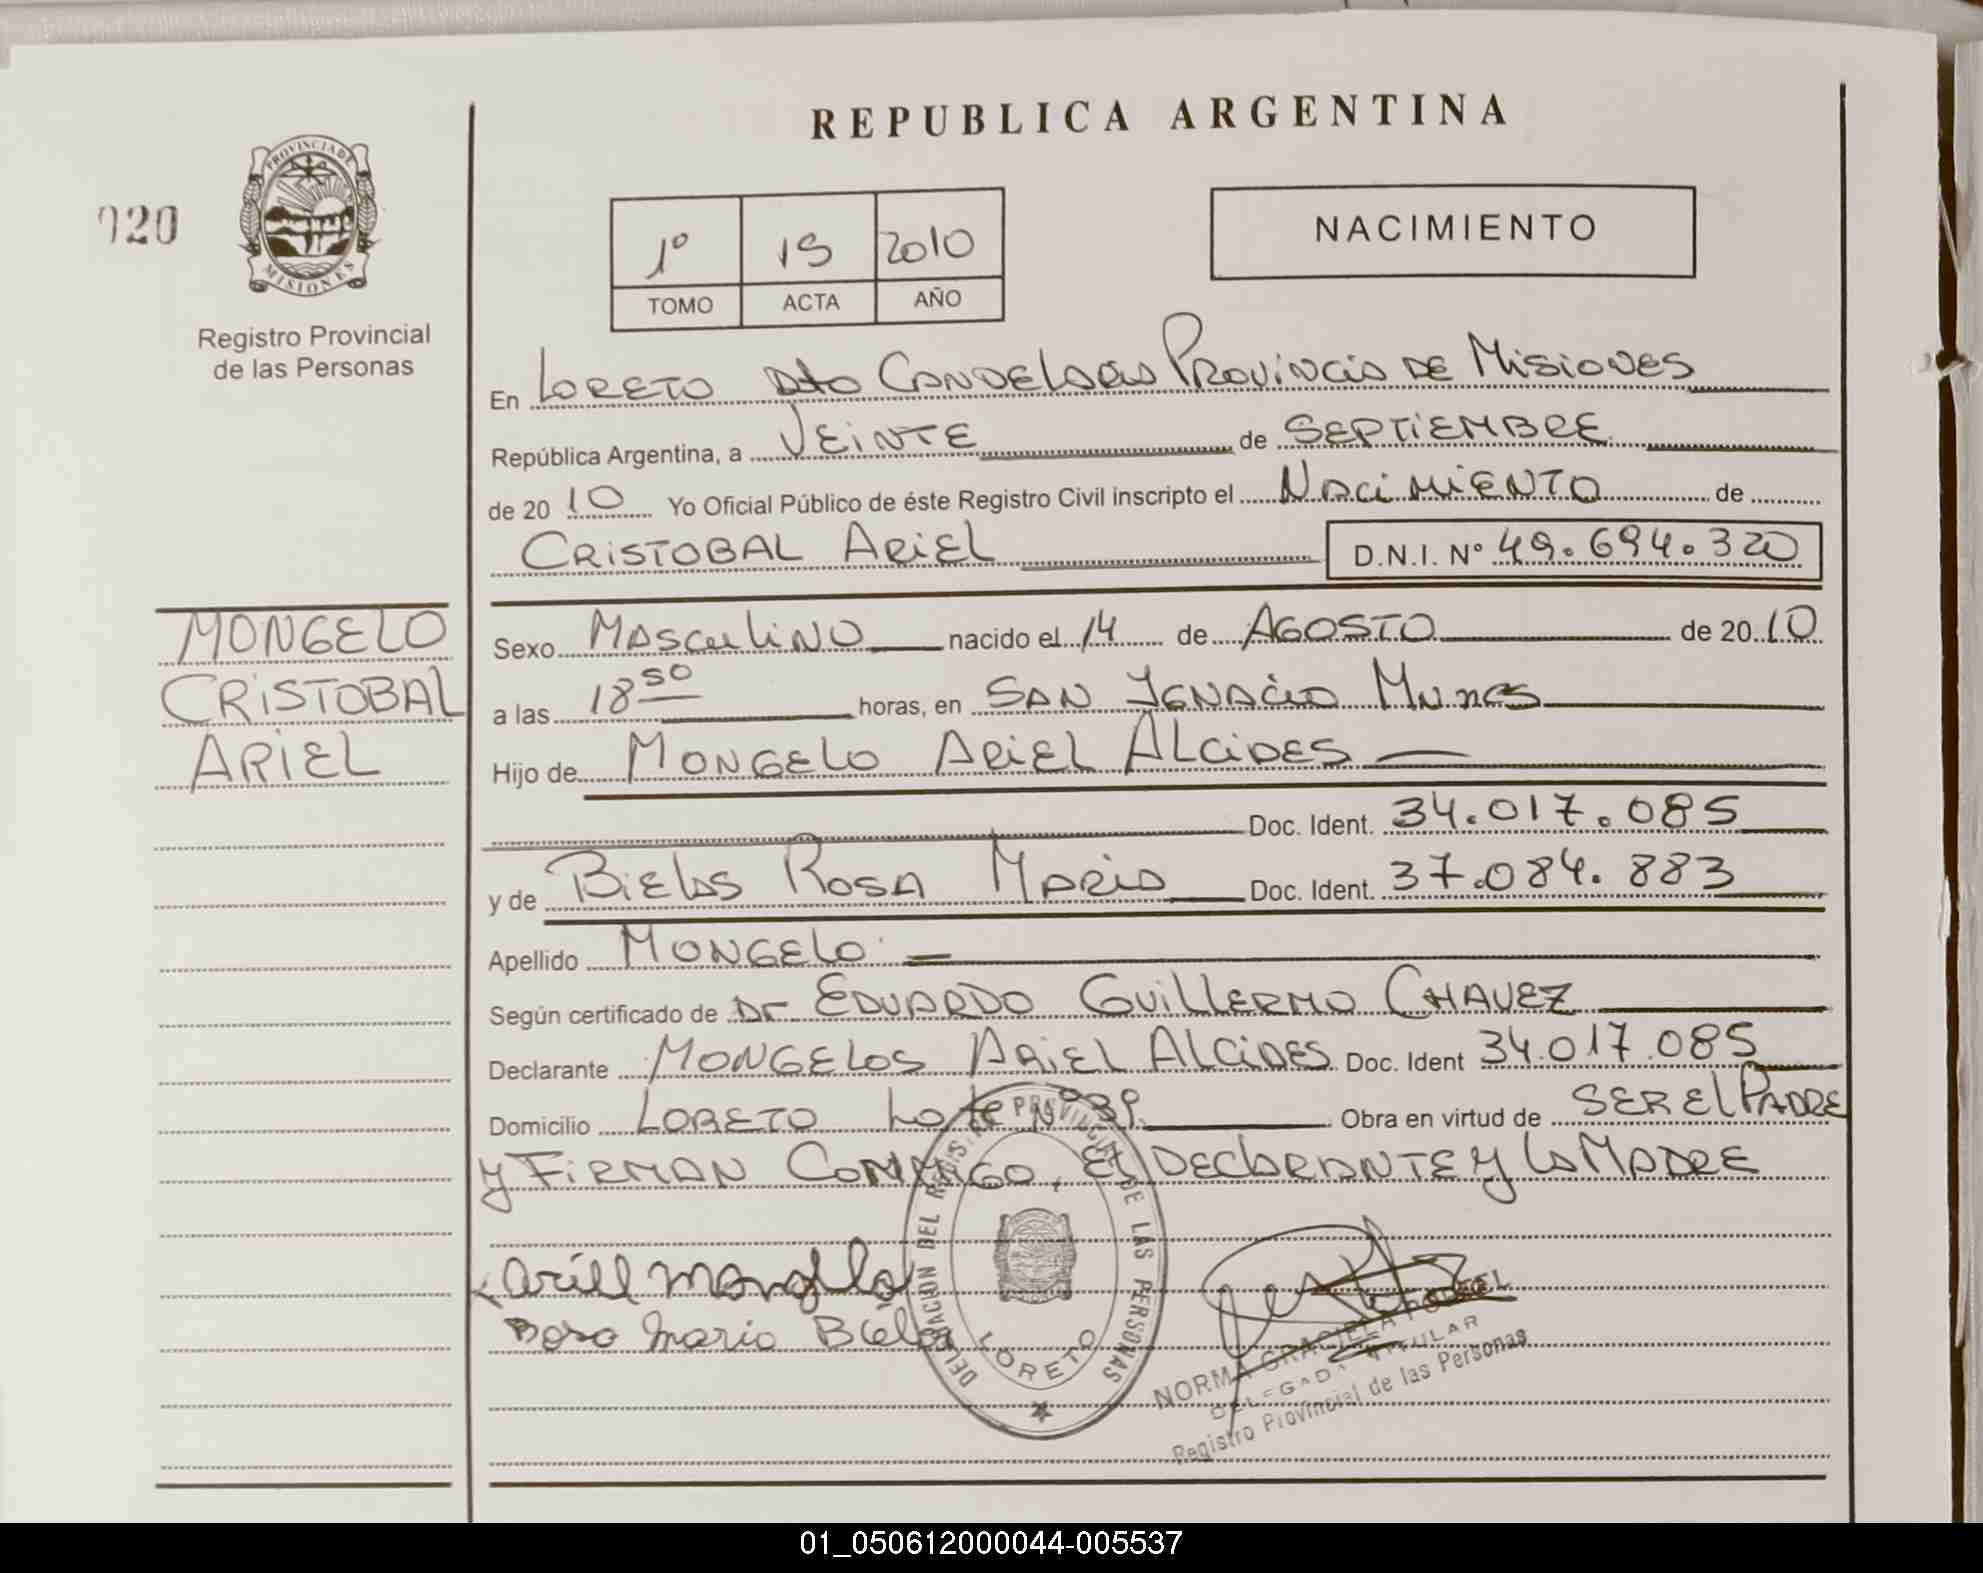 REPUBLICA ARGENTINA
020
PROVINCIA DE
MISIONES
Registro Provincial
de las Personas
1º 19 2010
TOMO ACTA AÑO
NACIMIENTO
En LORETO Dto CANDELARIA PROVINCIA DE MISIONES
República Argentina, a VEINTE de SEPTIEMBRE
de 2010 Yo Oficial Público de éste Registro Civil inscripto el NACIMIENTO de
CRISTOBAL ARIEL D.N.I. Nº 49.694.320
MONGELO
CRISTOBAL
ARIEL
Sexo MASCULINO nacido el 14 de AGOSTO de 2010
a las 18 50 horas, en SAN IGNACIO Mnes
Hijo de MONGELO ARIEL ALCIDES
Doc. Ident. 34.017.085
y de BIELAS ROSA MARIA Doc. Ident. 37.084.883
Apellido MONGELO
Según certificado de Dr EDUARDO GUILLERMO CHAVEZ
Declarante MONGELOS ARIEL ALCIDES Doc. Ident 34.017.085
Domicilio LORETO Lote Nº 39. Obra en virtud de SER EL PADRE
Y FIRMAN CONMIGO, EL DECLARANTE Y LA MADRE
Ariel Mongelo
Rosa Maria Biela
DELEGACION DEL REGISTRO PROVINCIAL DE LAS PERSONAS
LORETO
NORMA GRACIELA
DELEGADA TITULAR
Registro Provincial de las Personas
01_050612000044-005537